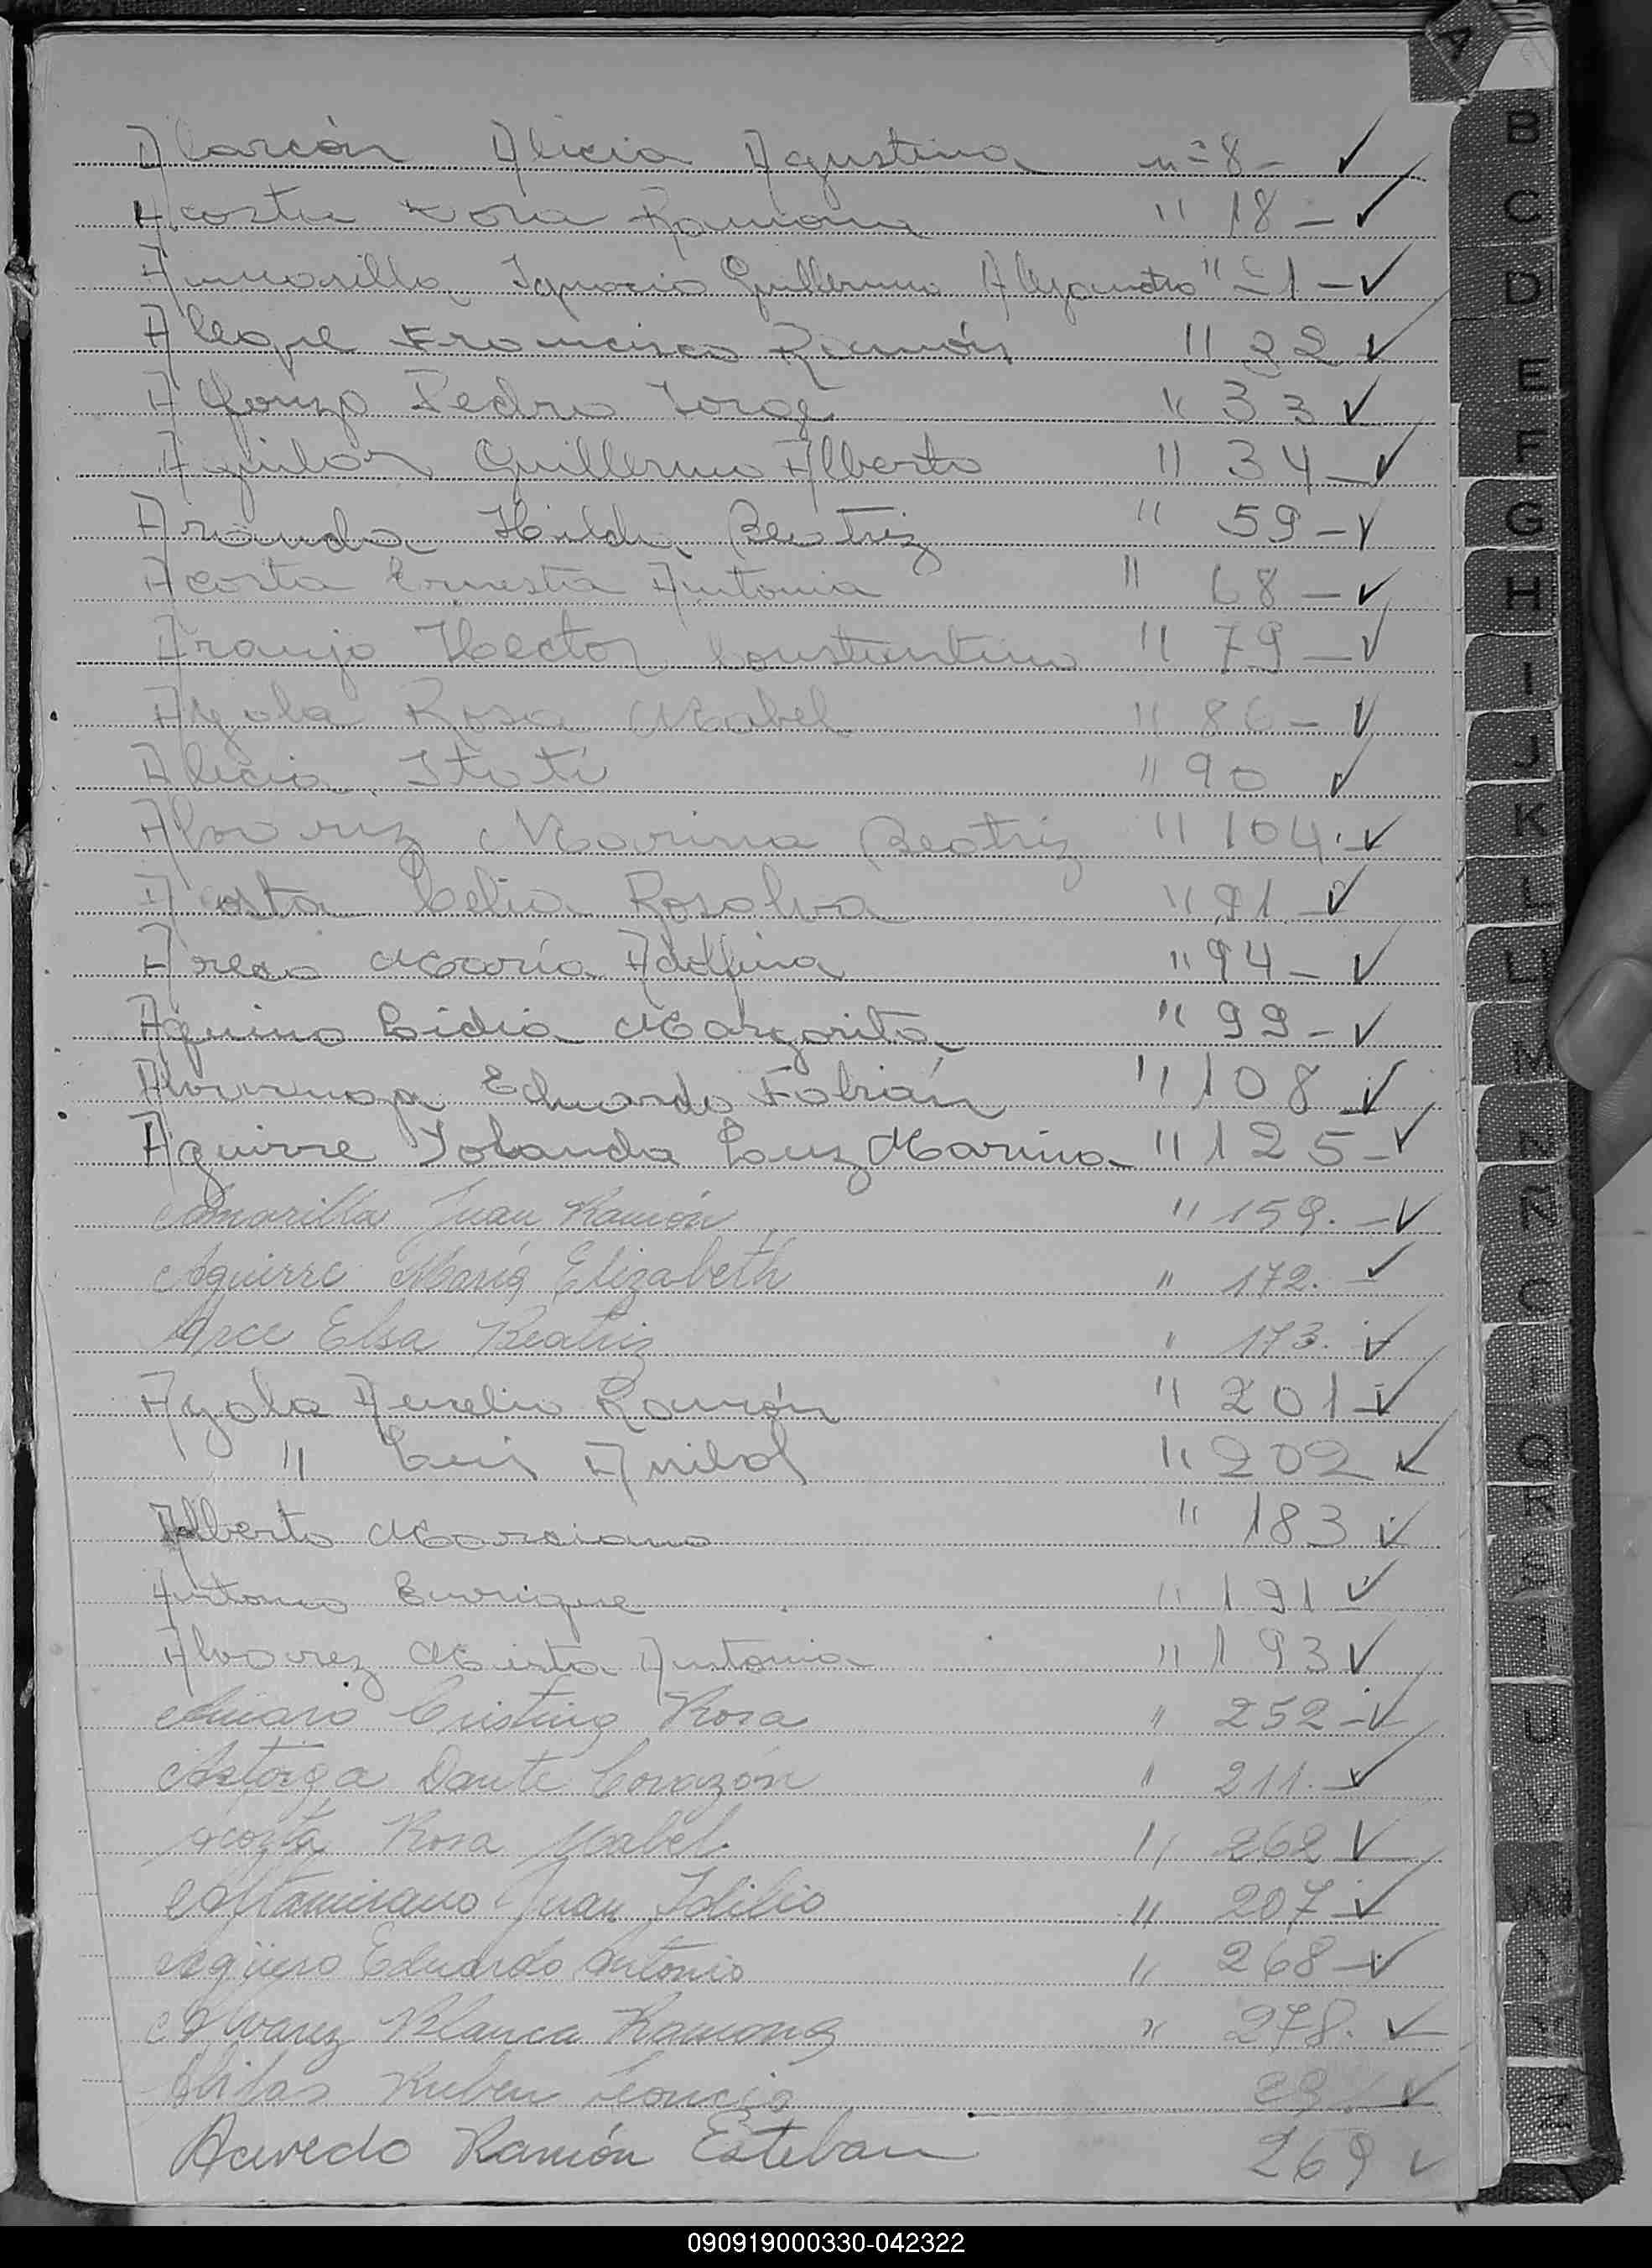 Alarcón Alicia Agustina nº 8 - ✓
Acosta Rosa Ramona " 18 - ✓
Amarilla Ignacio Guillermo Alejandro " 1 - ✓
Alegre Francisco Ramón " 22 ✓
Alfonzo Pedro Jorge " 33 ✓
Aguilar Guillermo Alberto " 34 - ✓
Aranda Hilda Beatriz " 59 - ✓
Acosta Ernesta Antonia " 68 - ✓
Araujo Hector Constantino " 79 - ✓
Ayala Rosa Mabel " 86 - ✓
Alicia Itatí " 90 ✓
Alvarez Marina Beatriz " 104. ✓
Acosta Celia Rosalva " 91 - ✓
María Adolfina " 94 - ✓
Aquino Lidia Margarita " 99 - ✓
Alvarenga Eduardo Fabián " 108 ✓
Aguirre Yolanda Luz Marina " 125 - ✓
Amarilla Juan Ramón " 159. - ✓
Aguirre María Elizabeth " 172. ✓
Arce Elsa Beatriz " 173. ✓
Ayala Aurelio Ramón " 201 ✓
" Luis Anibal " 202 ✓
Alberto Marciano " 183 ✓
Antonio Enrique " 191 ✓
Alvarez Mirta Antonia " 193 ✓
Amaro Cristina Rosa " 252 - ✓
Astorga Dante Corazón " 211. ✓
Acosta Rosa Mabel " 262 ✓
Altamirano Juan Idilio " 207 ✓
Agüero Eduardo Antonio " 268 - ✓
Alvarez Blanca Ramona " 278. ✓
Ruben Leoncio ✓
Acevedo Ramón Esteban 269 ✓
A
B
C
D
E
F
G
H
I
J
K
L
LL
M
N
Ñ
O
P
Q
R
S
T
U
V
W
X
Y
Z
090919000330-042322